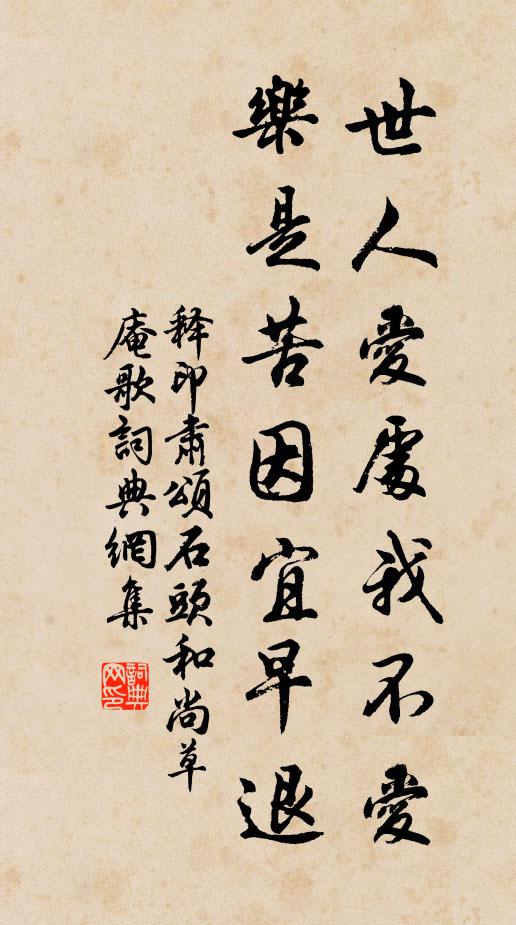 世人愛處我不愛
樂是苦因宜早退
释印肅頌石頭和尚草
庵歌詞典網集
詞典网印